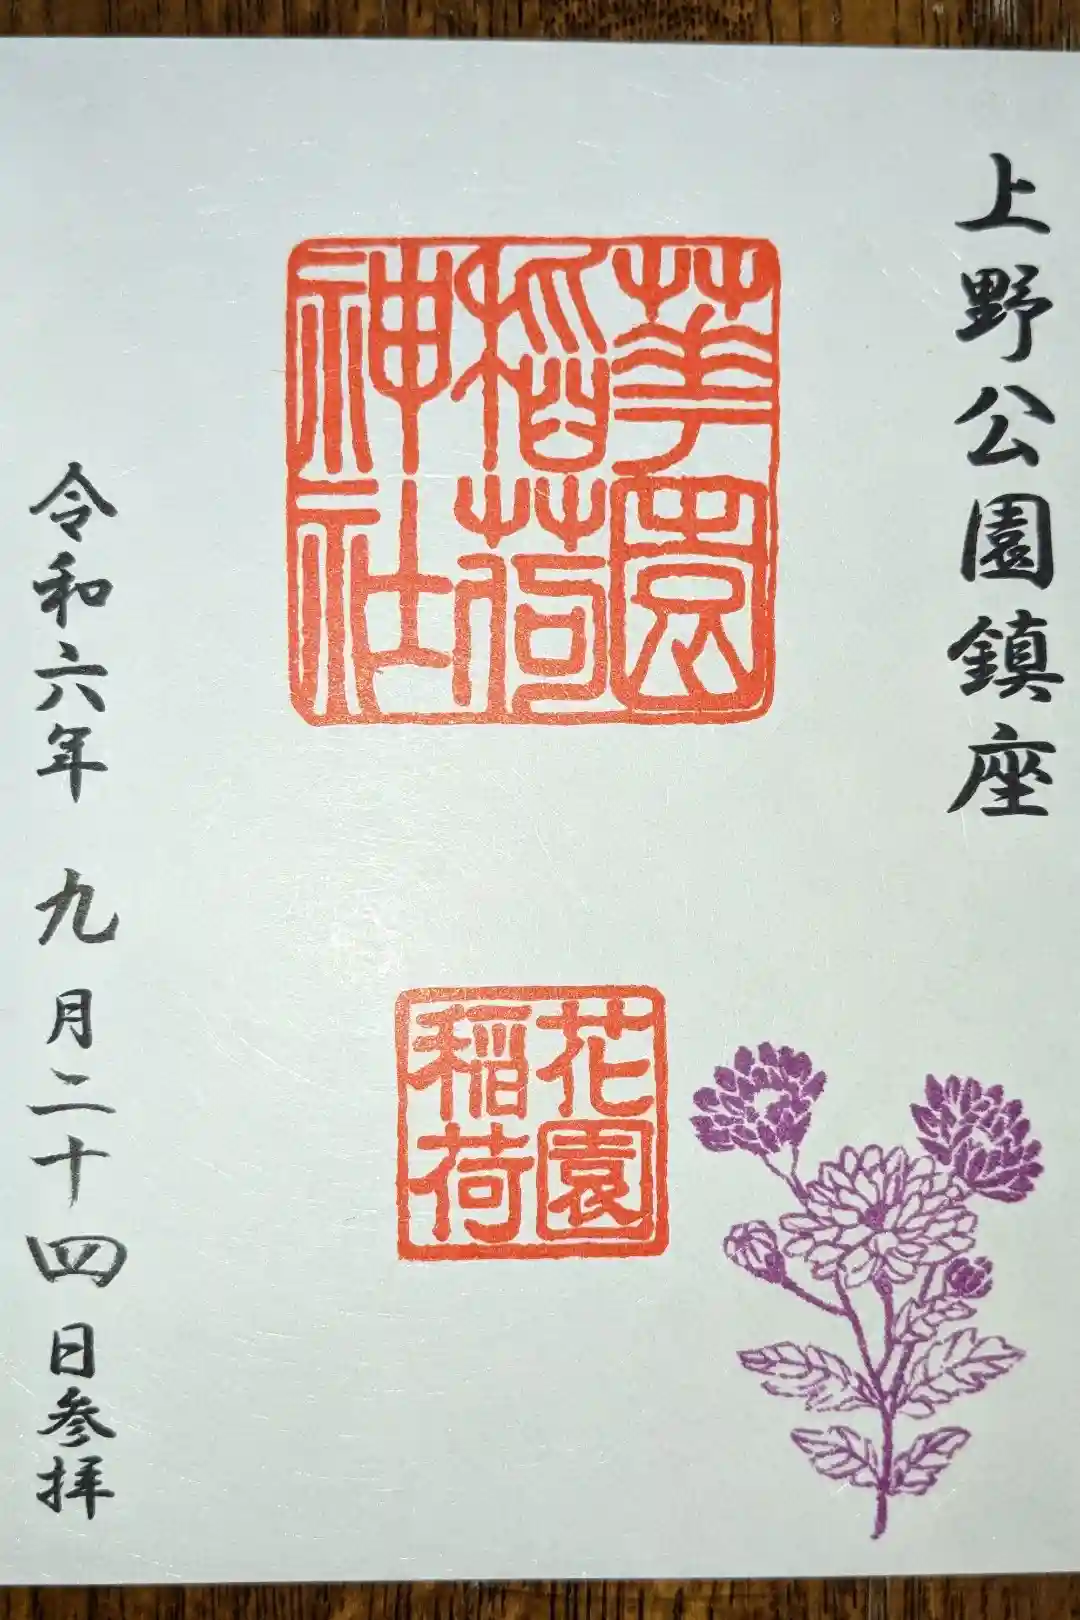 上野公園鎮座
華園
稲荷
神社
花園
稲荷
令和六年 九月二十四日参拝